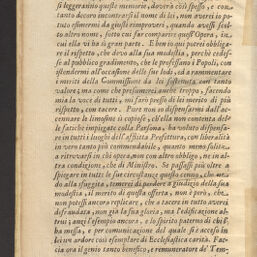 si leggeranno queste memorie, doverà còsì spesso, e con
tanto decoro incontrarsi il nome di lei, non avrei io po-
tuto esimermi da giusti rimproveri, quando avessi scel-
to altro nome, sotto cui far comparire quest'Opera, in
cui ella vi ha sì gran parte. E ben io qui potrei obbliga-
re il rispetto, che devo alla sua modestia, perchè cedes-
se al pubblico gradimento, che le professano i Popoli, con
istendermi all'occasione delle sue lodi, ed a rammentare
i meriti della Commissione da lei sostenuta con tanto
valore; ma come che presumerei anche troppo, facendo
mia la voce di tutti, mi farò pregio di lei merito di più
rispetto, con tacere. Pure non io dispensarmi dall'ac-
cennare le limosine sì copiose, ch'ella non contenta del-
le fatiche impiegate colla Persona, ha voluto dispensa-
re in tutti i luoghi dell'afflitta Prefettura, con liberalità
in vero tanto più commendabile, quanto meno solita
a ritrovarsi in chi opera, non con altro obbligo, ne in al-
tra condizione, che di Ministro. Se passassi più oltre a
spiegare in tutte le sue circostanze questo cenno, che
do alla sfuggita, temerei di perdere a giudizio della sua
modestia, il merito di questa offerta, non è però, che
non potessi ancora replicare, che a tacere in tutto averei
defraudata, non già la sua gloria, ma l'edificazione al-
trui; anzi l'esempio ancora, e lo spirito paterno di chi l'
ha messa, e per comunicazione del quale si è acceso in
lei un ardore così esemplare di Ecclesiastica carità. Fac-
cia ora il genio tanto benefico, e remuneratore de' Tem-